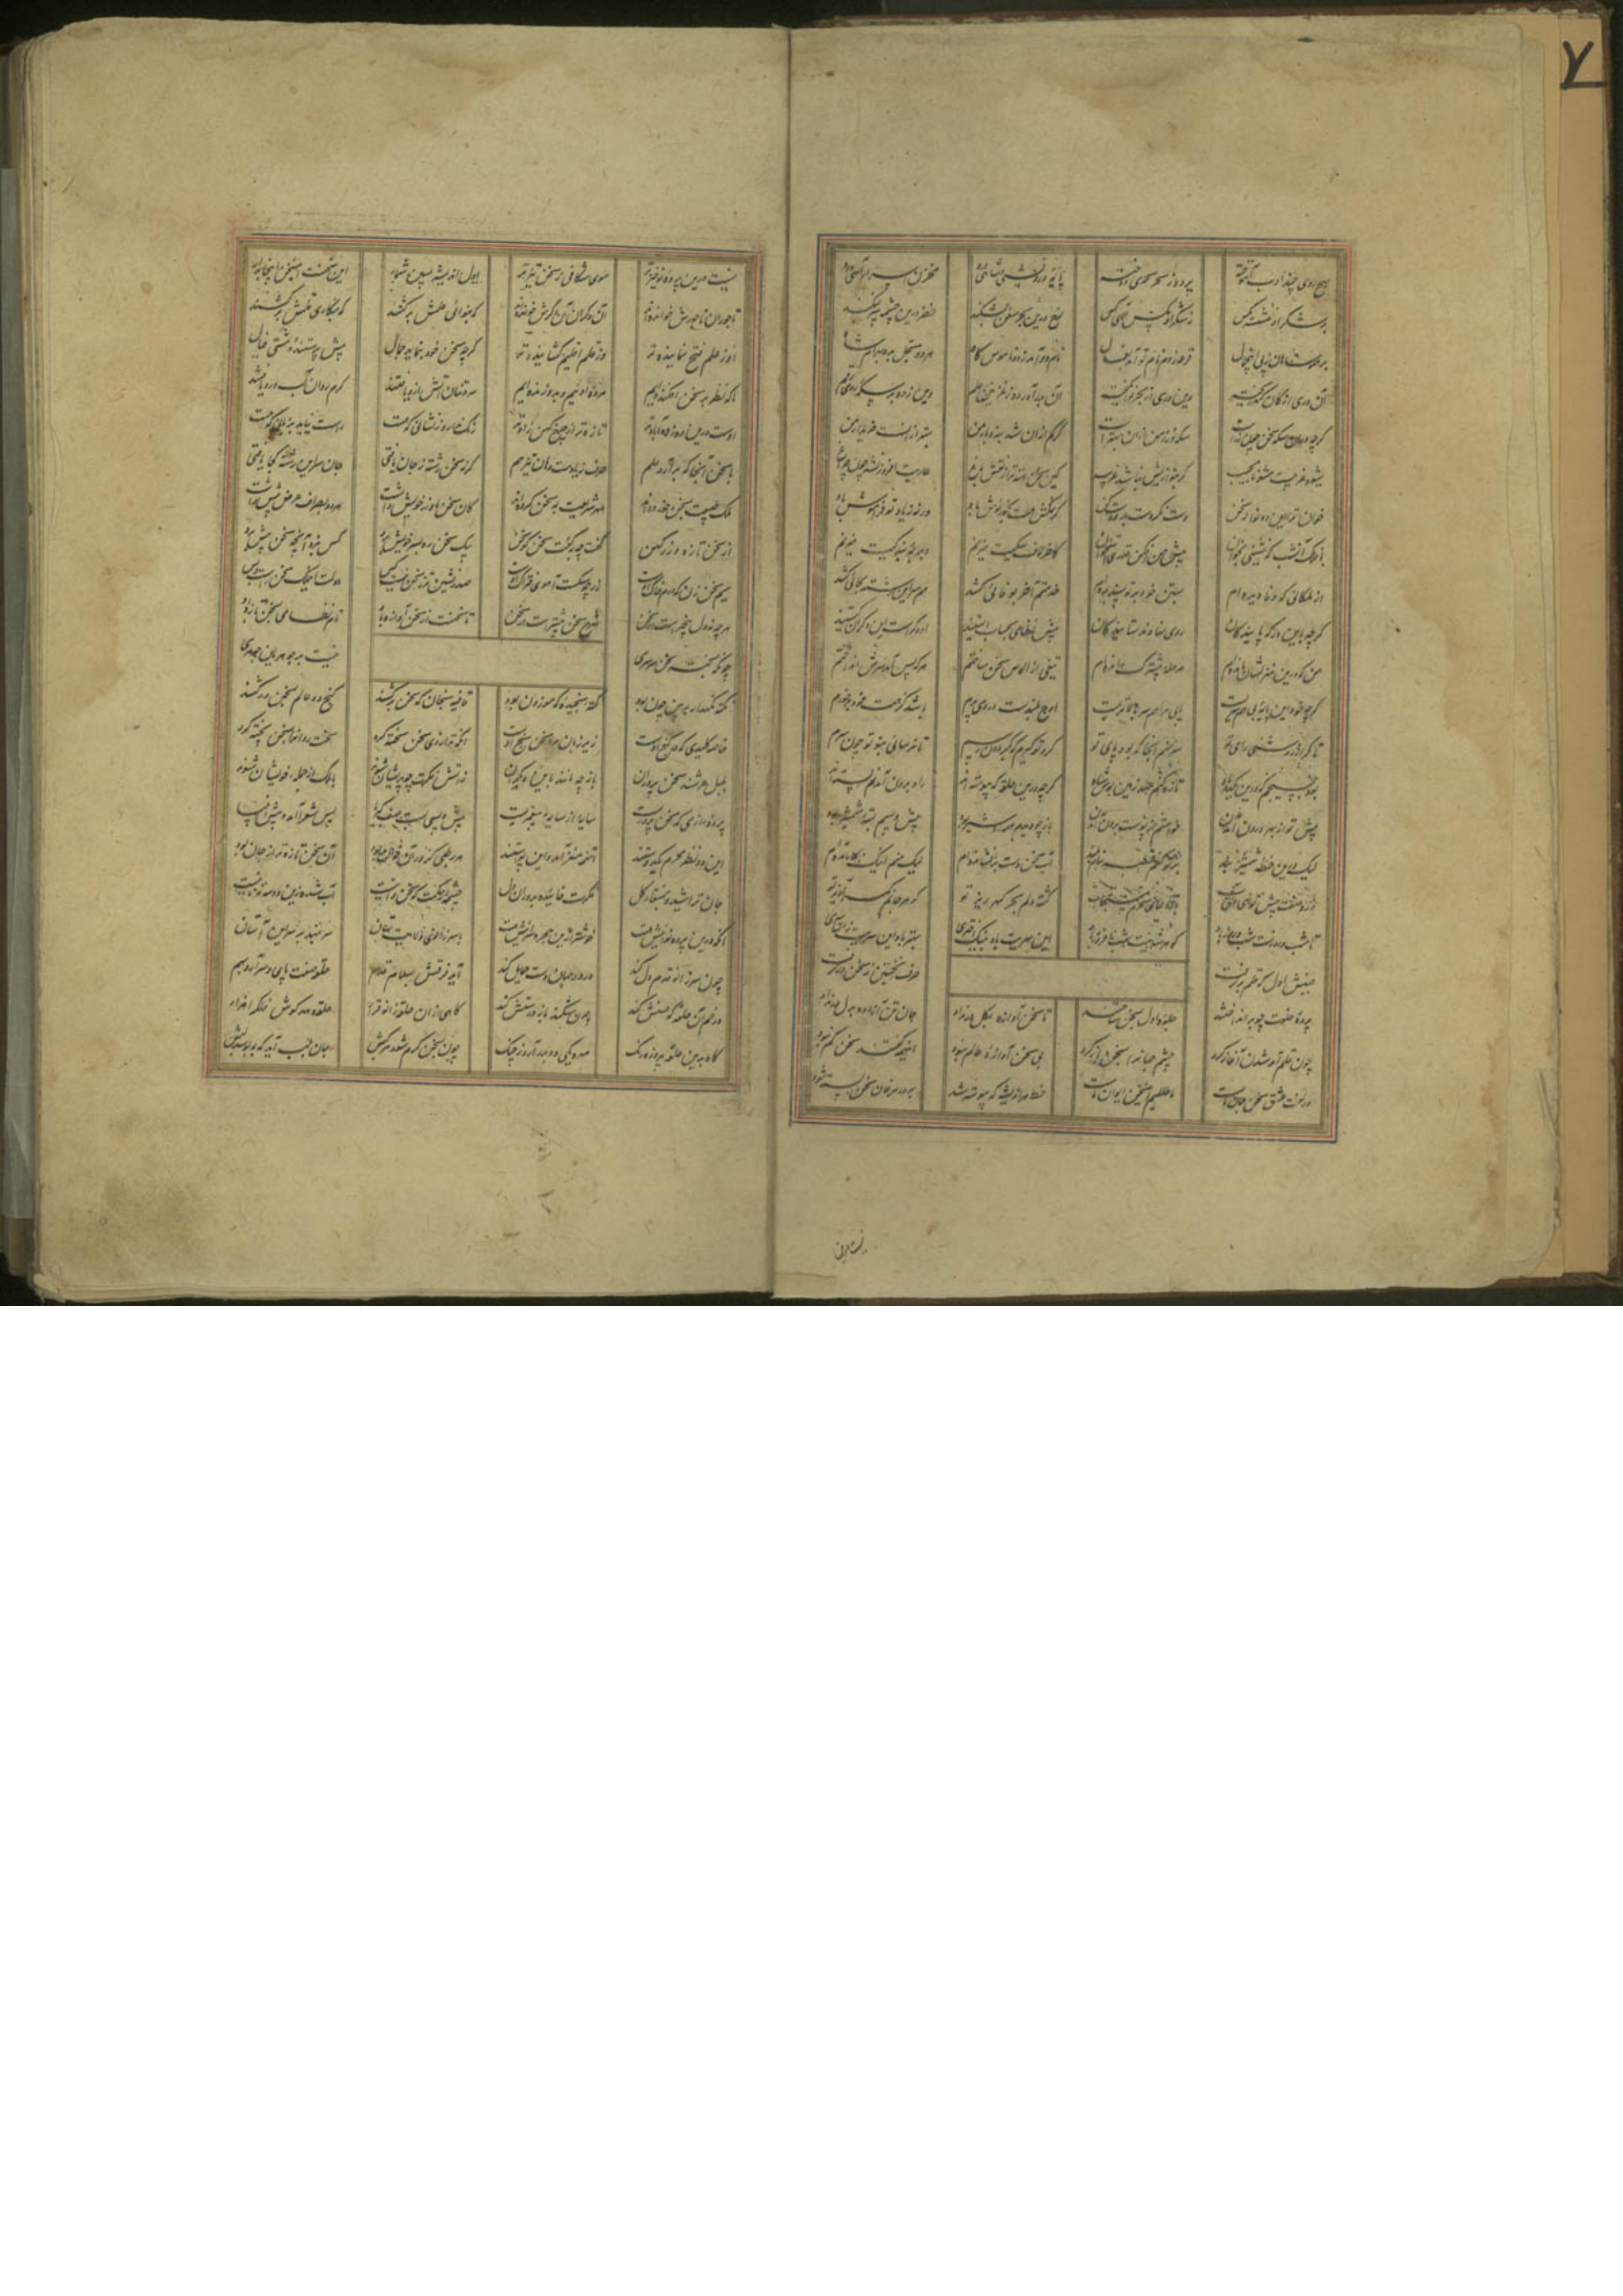 هیچ روی چند ادب آموخته پرده ز سحر سحری دوخته پایه درویشی و شاهی درو مخزن اسرار الهی درو
بر شکر او ننشسته مگس نه شکر او مگس آلای کس نوح درین بحر سفن بشکند خضر درین چشمه سپر بفکند
بر همه شاهان ز پی این جمال قرعه زدم نام تو آمد بفال نامه دو آمد ز دو ناموس گاه هر دو مسجل به دو بهرام شاه
آن زری از کان کهن ریخته وین دری از بحر نو انگیخته آن بدر آورده ز غزنین علم وین زده بر سکه رومی رقم
گرچه در آن سکه سخن چون زر است سکه زر من از آن بهتر است گر کم از آن شد بنه و بار من بهتر از آنست خریدار من
شیوه غریب است مشو نامجیب گر بنوازیش نباشد غریب کین سخن رسته تر از نقش باغ عاریت افروز نشد چون چراغ
خوان ترا این دو نواله سخن دست نکردست برو دست کن گر نمکش هست بخور نوش باد ورنه ز یاد تو فراموش باد
با فلک آن شب که نشینی بخوان پیش من افکن قدری استخوان کاخر لاف سگیت میزنم دبدبه بندگیت میزنم
از ملکانی که وفا دیده ام بستن خود بر تو پسندیده ام خدمتم آخر بوفائی کشد هم سر این رشته بجائی کشد
گرچه بدین درگه پایندگان روی نهادند ستایندگان پیش نظامی بحساب ایستند او دگر است این دگران کیستند
من که درین منزلشان مانده ام مرحله پیشترک رانده ام تیغی از الماس سخن ساختم هر که پس آمد سرش انداختم
گرچه خود این پایه بی همسریست پای مرا هم سر بالاتریست اوج بلندست درو می پرم باشد کز همت خود برخورم
تا مگر از روشنی رای تو سر نهم آنجا که بود پای تو گرد تو گیرم که بگردون رسم تا نرسانی تو چون رسم
بود بسیجم که درین یکدو ماه تازه کنم عهد زمین بوس شاه گرچه درین حلقه که پیوسته اند راه برون آمدنم بسته اند
پیش تو از بهر آمدن خواستم از پوست برون آمدن باز چو دیدم همه ره شیر بود پیش و پسم شمشیر بود
لیک درین خطه شمشیر بند بر تو کنم خطبه آب سخن بر درت افشانده ام ریگ منم اینک بجا مانده ام
ذره صفت پیش تو ای آفتاب باد دعای سحرم مستجاب گشته دلم بحر گهر ریز تو گوهر جانم کمر آویز تو
تا شب و روزست شبت روز باد این سریت باد بنیک اختری بهتر باد آن سریت زین سری
جنبش اول که قلم برگرفت حرف نخستین ز سخن درگرفت
پرده خلوت چو برانداختند جلوه اول بسخن ساختند تا سخن آوازه بگل در نداد جان تن آزاده بدل در نداد
چون قلم آمد شدن آغاز کرد چشم جهان را بسخن باز کرد بی سخن آوازه عالم نبود این همه گفتند سخن کم نبود
در لغت عشق سخن جان ماست ما سخنیم این ایوان ماست خط هر اندیشه که پیوسته شد بر پر مرغان سخن بسته شد
نیست درین پرده نوخیزتر موی شکافی ز سخن تیزتر اول اندیشه پسین شمار این سخنست این سخن اینجا بدار
تاجوران تاجورش خوانده اند وان دگران آن دگرش خوانده اند گه بنوای علمش برکشند گه بنگار قلمش درکشند
او ز علم فتح نماینده تر وز قلم اقلیم گشاینده تر گرچه سخن خود ننماید جمال پیش پرستنده مشتی خیال
ما که نظر بر سخن افکنده ایم مرده اوئیم و بدو زنده ایم سردتنان آتش ازو یافتند گرم روان آب درو یافتند
اوست درین ده ز ده آبادتر تازه تر از چرخ کهن زادتر رنگ ندارد ز نشانی که هست راست نیاید بزبانی که هست
با سخن آنجا که برآرد علم حرف زیادست و زبان نیز هم گر نه سخن رشته ز جان تافتی جان سر این رشته کجا یافتی
ملک طبیعت بسخن خورده اند مهر شریعت بسخن کرده اند کان سخن ما و زر خویش داشت هر دو بصراف سخن پیش داشت
از سخن تازه و زر کهن گفت چه به گفت سخن به سخن پیک سخن ره بسر خویش برد کس نبرد آنچه سخن پیش برد
سیم سخن زن که درم خاک اوست زر چه سگست آهوی فتراک اوست صدرنشین تر ز سخن نیست کس دولت این ملک سخن راست بس
هرچه نه دل بی خبرست از سخن شرح سخن بیشترست از سخن تا سخنست از سخن آوازه باد نام نظامی بسخن تازه باد
چونکه نسخته سخن سرسری هست بر گوهریان گوهری
نکته نگهدار ببین چون بود نکته که سنجیده و موزون بود قافیه سنجان که سخن برکشند گنج دو عالم بسخن درکشند
خاصه کلیدی که در گنج راست زیر زبان مرد سخن سنج راست آنکه ترازوی سخن سخته کرد بختوران را بسخن پخته کرد
بلبل عرشند سخن پروران باز چه مانند باین دیگران ز آتش فکرت چو پریشان شوند با ملک از جمله خویشان شوند
پرده رازی که سخن پروریست سایه از سایه پیغمبریست پیش و پسی بست صف کبریا پس شعرا آمد و پیش انبیا
این دو نظر محرم یک دوستند این دو چو مغز آن همه چون پوستند هر رطبی کز سر آن خوان بود آن نه سخن پاره از جان بود
جان تراشیده بمنقار گل فکرت خائیده بدندان دل چشمه حکمت که سخن دانیست آب شده زین دو سه یک نانیست
آنکه درین پرده نوائیش هست خوشتر ازین حجره سرائیش هست با سر زانوی ولایت ستان سر ننهد بر سر هر آستان
چون سر زانو قدم دل کند در دو جهان دست حمایل کند آید فرقش بسلام قدم حلقه صفت پای و سر آرد بهم
در خم آن حلقه که چستش کند جان شکند باز درستش کند گاهی از آن حلقه زانو قرار حلقه نهد گوش فلک را هزار
گاه بدین حلقه فیروزه رنگ مهره یکی ده بدر آرد ز چنگ چون بسخن گرم شود مرکبش جان بلب آید که ببوسد لبش